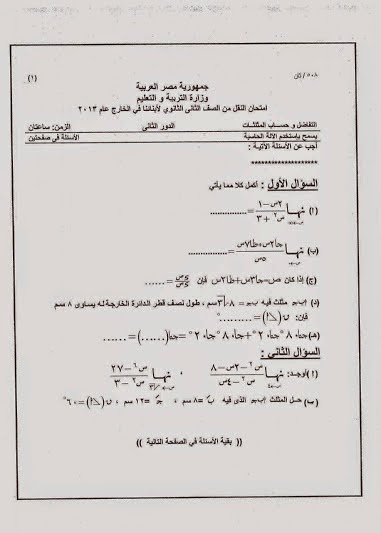 ٥٠٨/ثان
(١)
جمهورية مصر العربية
وزارة التربية و التعليم
امتحان النقل من الصف الثانى الثانوي لأبنائنا في الخارج عام ٢٠١٣
التفاضل و حساب المثلثات الدور الثانى الزمن: ساعتان
يسمح باستخدم الآلة الحاسبة الأسئلة في صفحتين
أجب عن الأسئلة الآتية :
********************
السؤال الأول : أكمل كلا مما يأتي
(أ) نهـا ٢س−١ / س٢+٣ = ..............
(ب) نهـا جا٢س+طا٧س / ٥س = ..............
(ج) إذا كان ص=جا٣س+طا٢س فإن ءص/ءس = ......
(د) أ ب جـ مثلث فيه ب جـ = ٨√٣ سم ، طول نصف قطر الدائرة الخارجة له يساوى ٨ سم
فإن: ق(أ) = .........°
(هـ) جا٨٠° جا٢٠°+جتا٨٠° جتا٢٠° = جتا(......) = ......
السؤال الثانى :
(أ) أوجد: نهـا س٢−٢س−٨ / س٢−٤س ، نهـا س٦−٢٧ / س٢−٣
(ب) حل المثلث أ ب جـ الذى فيه بَ=٨ سم ، جـَ=١٢ سم ، ق(أ)=٦٠°
(( بقية الأسئلة في الصفحة التالية ))